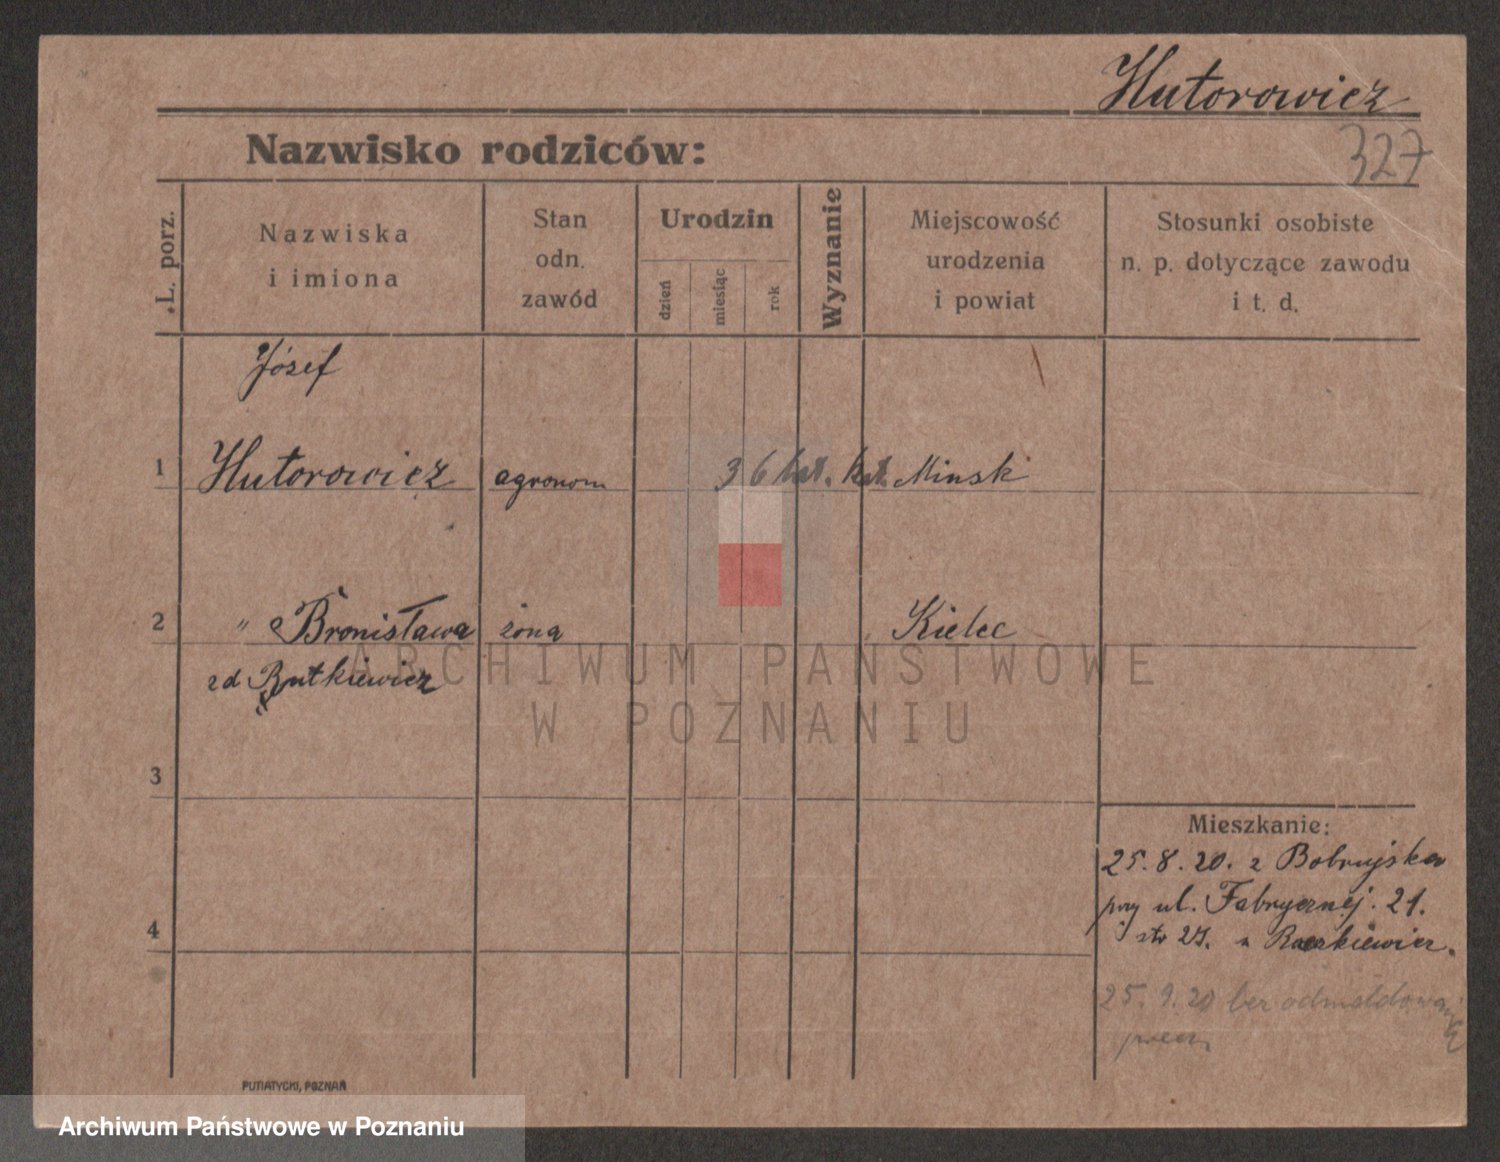 Hutorowicz
Nazwisko rodziców:
327
L. porz.
Nazwiska
i imiona
Stan
odn.
zawód
Urodzin
dzień
miesiąc
rok
Wyznanie
Miejscowość
urodzenia
i powiat
Stosunki osobiste
n. p. dotyczące zawodu
i t. d.
Józef
1 Hutorowicz agronom 36 lat. kat. Minsk
2 " Bronisława żona Kielec
zd Rutkiewicz
ARCHIWUM PAŃSTWOWE
W POZNANIU
3
Mieszkanie:
25.8.20. z Bobrujska
przy ul. Fabrycznej. 21.
4
str 25. u Raczkiewicz.
25.9.20 bez odmeldowania
PUTIATYCKI, POZNAŃ
Archiwum Państwowe w Poznaniu